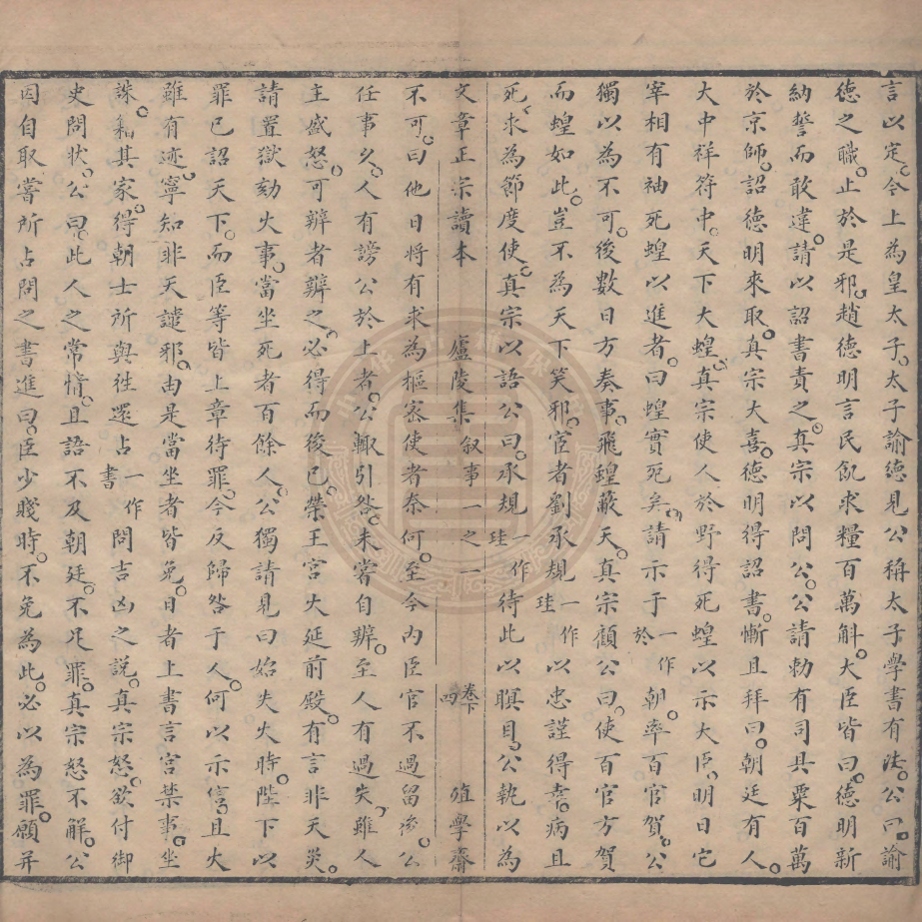 言以定。今上為皇太子。太子諭德見公稱太子學書有法。公曰。諭
德之職。止於是邪。趙德明言民飢求糧百萬斛。大臣皆曰。德明新
納誓而敢違。請以詔書責之。真宗以問公。公請勅有司具粟百萬
於京師。詔德明來取。真宗大喜。德明得詔書。慚且拜曰。朝廷有人。
大中祥符中。天下大蝗。真宗使人於野得死蝗以示大臣。明日它
宰相有袖死蝗以進者。曰蝗實死矣。請示于一作於朝。率百官賀。公
獨以為不可。後數日方奏事。飛蝗蔽天。真宗顧公曰。使百官方賀
而蝗如此。豈不為天下笑邪。宦者劉承規一作珪以忠謹得幸。病且
死。求為節度使。真宗以語公曰。承規一作珪待此以瞑目。公執以為
文章正宗讀本 廬陵集 敘事一之一 卷下 四 殖學齋
不可。曰他日將有求為樞密使者奈何。至今內臣官不過留後。公
任事久。人有謗公於上者。公輒引咎。未嘗自辨。至人有過失。雖人
主盛怒。可辨者辨之。必得而後已。榮王宮火延前殿。有言非天災。
請置獄劾火事。當坐死者百餘人。公獨請見曰始失火時。陛下以
罪已詔天下。而臣等皆上章待罪。今反歸咎于人。何以示信。且火
雖有迹。寧知非天譴邪。由是當坐者皆免。日者上書言宮禁事。坐
誅。籍其家。得朝士所與往還占一作書問吉凶之說。真宗怒。欲付御
史問狀。公曰。此人之常情。且語不及朝廷。不足罪。真宗怒不解。公
因自取嘗所占問之書進曰。臣少賤時。不免為此。必以為罪。願并